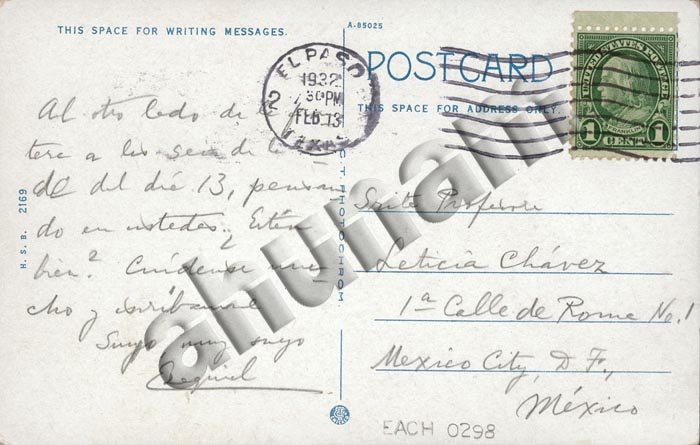 THIS SPACE FOR WRITING MESSAGES.
A-85025
POSTCARD
THIS SPACE FOR ADDRESS ONLY.
EL PASO
1932
7 30 PM
FEB 13
TEXAS
2
UNITED STATES POSTAGE
FRANKLIN
1 CENT 1
Al otro lado de la
tera a las seis de la
de del día 13, pensan
do en ustedes. ¿Están
bien? Cuídense mu
cho y escríbanme
Suyo muy suyo
Ezequiel
Srita Profesora
Leticia Chávez
1ª Calle de Roma No. 1
Mexico City, D.F.,
México
H. S. B. 2169
C. T. PHOTOCHROM
EACH 0298
ahunam